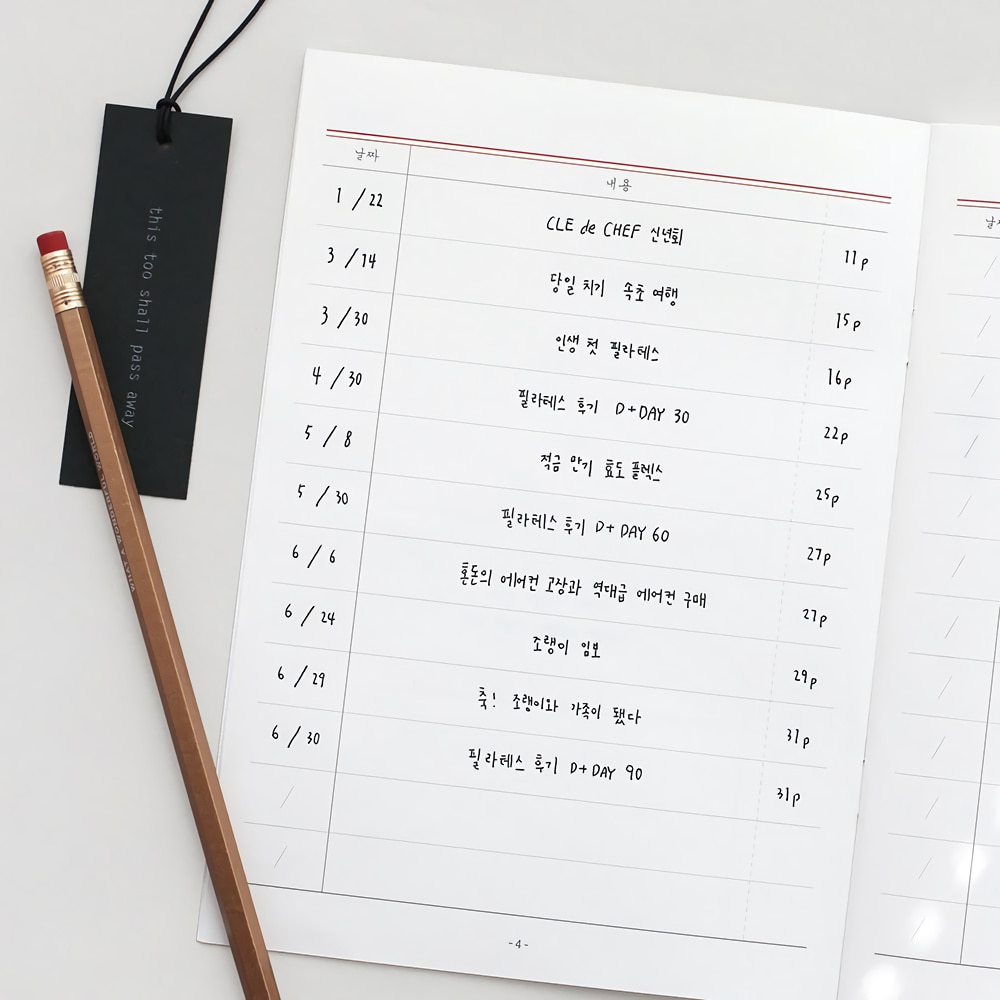 this too shall pass away
WHAT A WONDERFUL WORLD
날짜 내용
1 / 22 CLE de CHEF 신년회 11p
3 / 14 당일치기 속초 여행 15p
3 / 30 인생 첫 필라테스 16p
4 / 30 필라테스 후기 D+DAY 30 22p
5 / 8 적금 만기 효도 플렉스 25p
5 / 30 필라테스 후기 D+DAY 60 27p
6 / 6 혼돈의 에어컨 고장과 역대급 에어컨 구매 27p
6 / 24 조랭이 임보 29p
6 / 29 축! 조랭이와 가족이 됐다 31p
6 / 30 필라테스 후기 D+DAY 90 31p
-4-